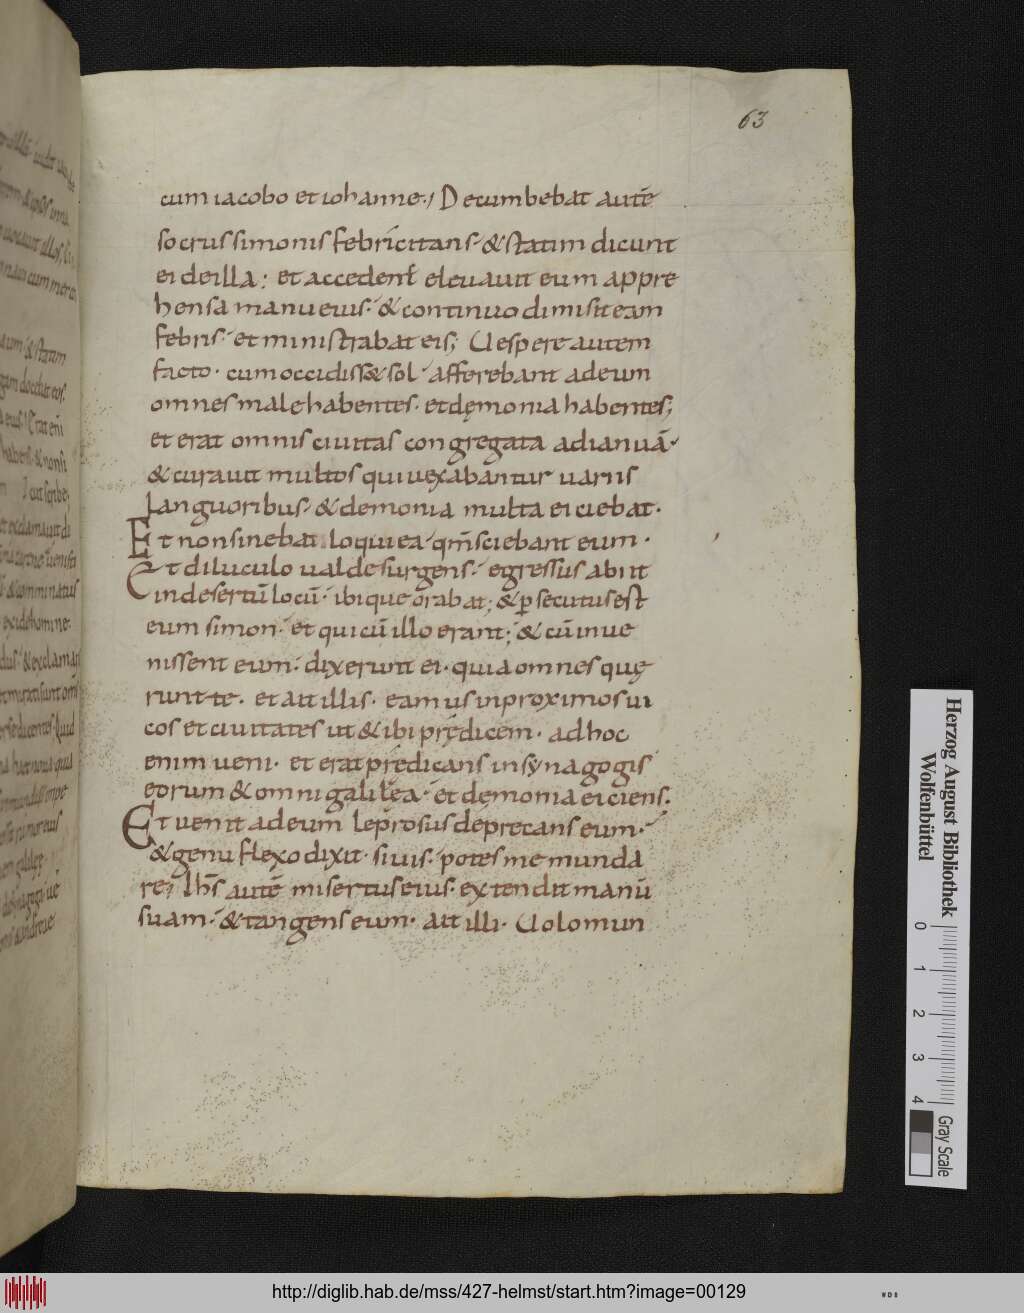 63
cum iacobo et iohanne·, Decumbebat autē
socrus simonis febricitans· & statim dicunt
ei de illa; et accedenſ eleuauit eum appre
hensa manu eius· & continuo dimisit eam
febris· et ministrabat eis; Uespere autem
facto· cum occidiss& sol· afferebant ad eum
omnes male habentes· et dęmonia habentes;
et erat omnis ciuitas congregata ad ianuā·
& curauit multos qui uexabantur uariis
languoribus· & demonia multa eiciebat·
Et non sinebat loqui ea· qm̄ sciebant eum·
Et diluculo ualde surgens· egressus abiit
in desertū locū· ibique orabat; & psecutus est
eum simon· et qui cū illo erant; & cū inue
nissent eum· dixerunt ei· quia omnes quę
runt te· et ait illis· eamus in proximos ui
cos et ciuitates ut & ibi prędicem· ad hoc
enim ueni· et erat prędicans in synagogis
eorum & omni galilea· et dęmonia eiciens·
Et uenit ad eum leprosus deprecans eum·
& genu flexo dixit· si uis· potes me munda
re; Ihs̄ autē misertus eius· extendit manū
suam· & tangens eum· ait illi· Uolo mun
Herzog August Bibliothek
Wolfenbüttel
0 1 2 3 4
Gray Scale
http://diglib.hab.de/mss/427-helmst/start.htm?image=00129